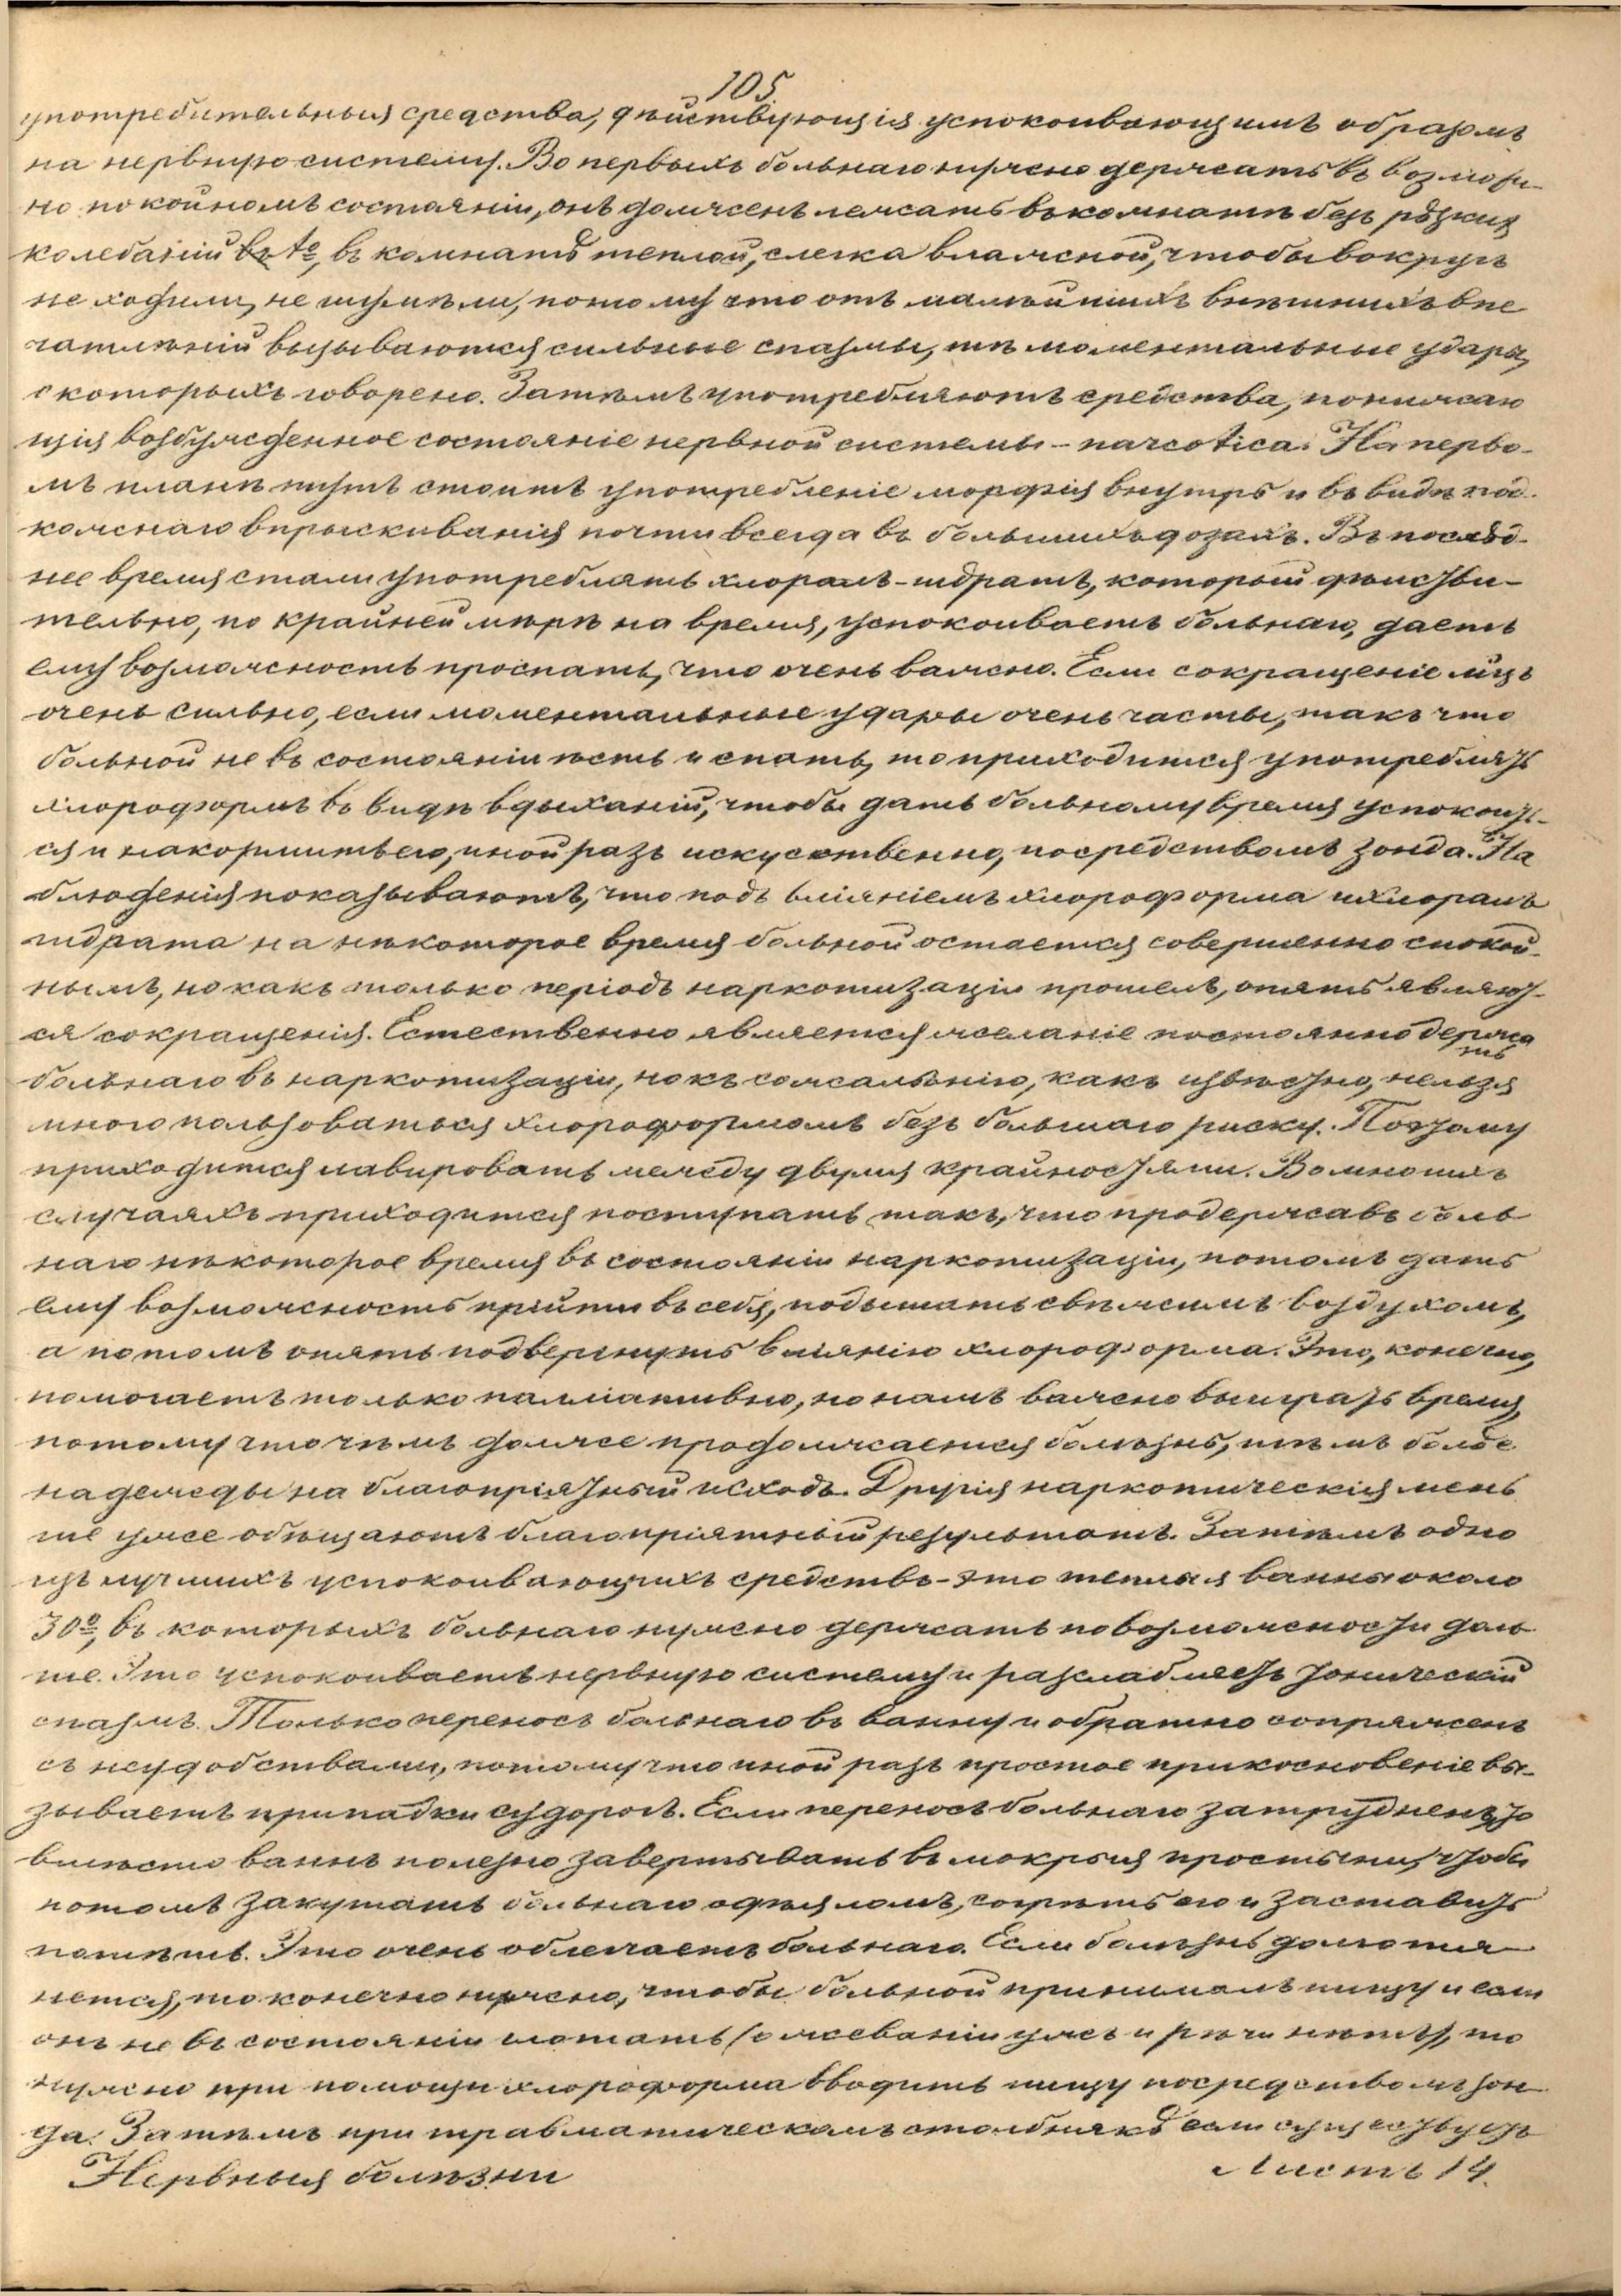 105
употребительныя средства, дѣйствующія успокоивающимъ образомъ
на нервную систему. Во первыхъ больнаго нужно держать въ возмож-
но покойномъ состояніи, онъ долженъ лежать въ комнатѣ безъ рѣзких
колебаній въ t°, въ комнатѣ теплой, слегка влажной, чтобы вокругъ
не ходили, не шумѣли, потому что отъ малѣйшихъ внѣшнихъ впе
чатлѣній вызываются сильные спазмы, тѣ моментальные удары,
о которыхъ говорено. Затѣмъ употребляютъ средства, понижаю
щія возбужденное состояніе нервной системы – narcotica. На перво-
мъ планѣ тутъ стоитъ употребленіе морфія внутрь и въ видѣ под-
кожнаго впрыскиванія почти всегда въ большихъ дозахъ. Въ послѣд-
нее время стали употреблять хлоралъ-гидратъ, который дѣйстви-
тельно, по крайней мѣрѣ на время, успокоиваетъ больнаго, даетъ
ему возможность проспать, что очень важно. Если сокращеніе мцъ
очень сильно, если моментальные удары очень часты, такъ что
больной не въ состояніи ѣсть и спать, то приходится употреблять
хлороформъ въ видѣ вдыханій, чтобы дать больному время успокоить-
ся и накормить его, иной разъ искуственно, посредствомъ зонда. На
блюденія показываютъ, что подъ вліяніемъ хлороформа и хлоралъ
гидрата на нѣкоторое время больной остается совершенно спокой-
нымъ, но какъ только періодъ наркотизаціи прошелъ, опять являют-
ся сокращенія. Естественно является желаніе постоянно держа
ть
больнаго въ наркотизаціи, но къ сожалѣнію, какъ извѣстно, нельзя
много пользоваться хлороформомъ безъ большаго риску. Поэтому
приходится лавировать между двумя крайностями. Во многихъ
случаяхъ приходится поступать такъ, что продержавъ боль
наго нѣкоторое время въ состояніи наркотизаціи, потомъ дать
ему возможность прійти въ себя, подышать свѣжимъ воздухомъ,
а потомъ опять подвергнуть вліянію хлороформа. Это, конечно,
помогаетъ только палліативно, но намъ важно выиграть время,
потому что чѣмъ долѣе продолжается болѣзнь, тѣмъ болѣе
надежды на благопріятный исходъ. Другія наркотическія мень
ше уже обѣщаютъ благопріятный результатъ. Затѣмъ одно
изъ лучшихъ успокоивающихъ средствъ – это теплыя ванны около
30°, въ которыхъ больнаго нужно держать по возможности доль
ше. Это успокоиваетъ нервную систему и разслабляетъ тоническій
спазмъ. Только переносъ больнаго въ ванну и обратно сопряженъ
съ неудобствами, потому что иной разъ простое прикосновеніе вы-
зываетъ припадки судорогъ. Если переносъ больнаго затрудненъ, то
вмѣсто ваннъ полезно завертывать въ мокрыя простыни, чтобы
потомъ закутать больнаго одѣяломъ, согрѣть его и заставить
потѣть. Это очень облегчаетъ больнаго. Если болѣзнь долго тя
нется, то конечно нужно, чтобы больной принималъ пищу и если
онъ не въ состояніи глотать (о жеваніи ужъ и рѣчи нѣтъ), то
нужно при помощи хлороформа вводить пищу посредствомъ зон
да. Затѣмъ при травматическомъ столбнякѣ если
Нервныя болѣзни
Листъ 14.